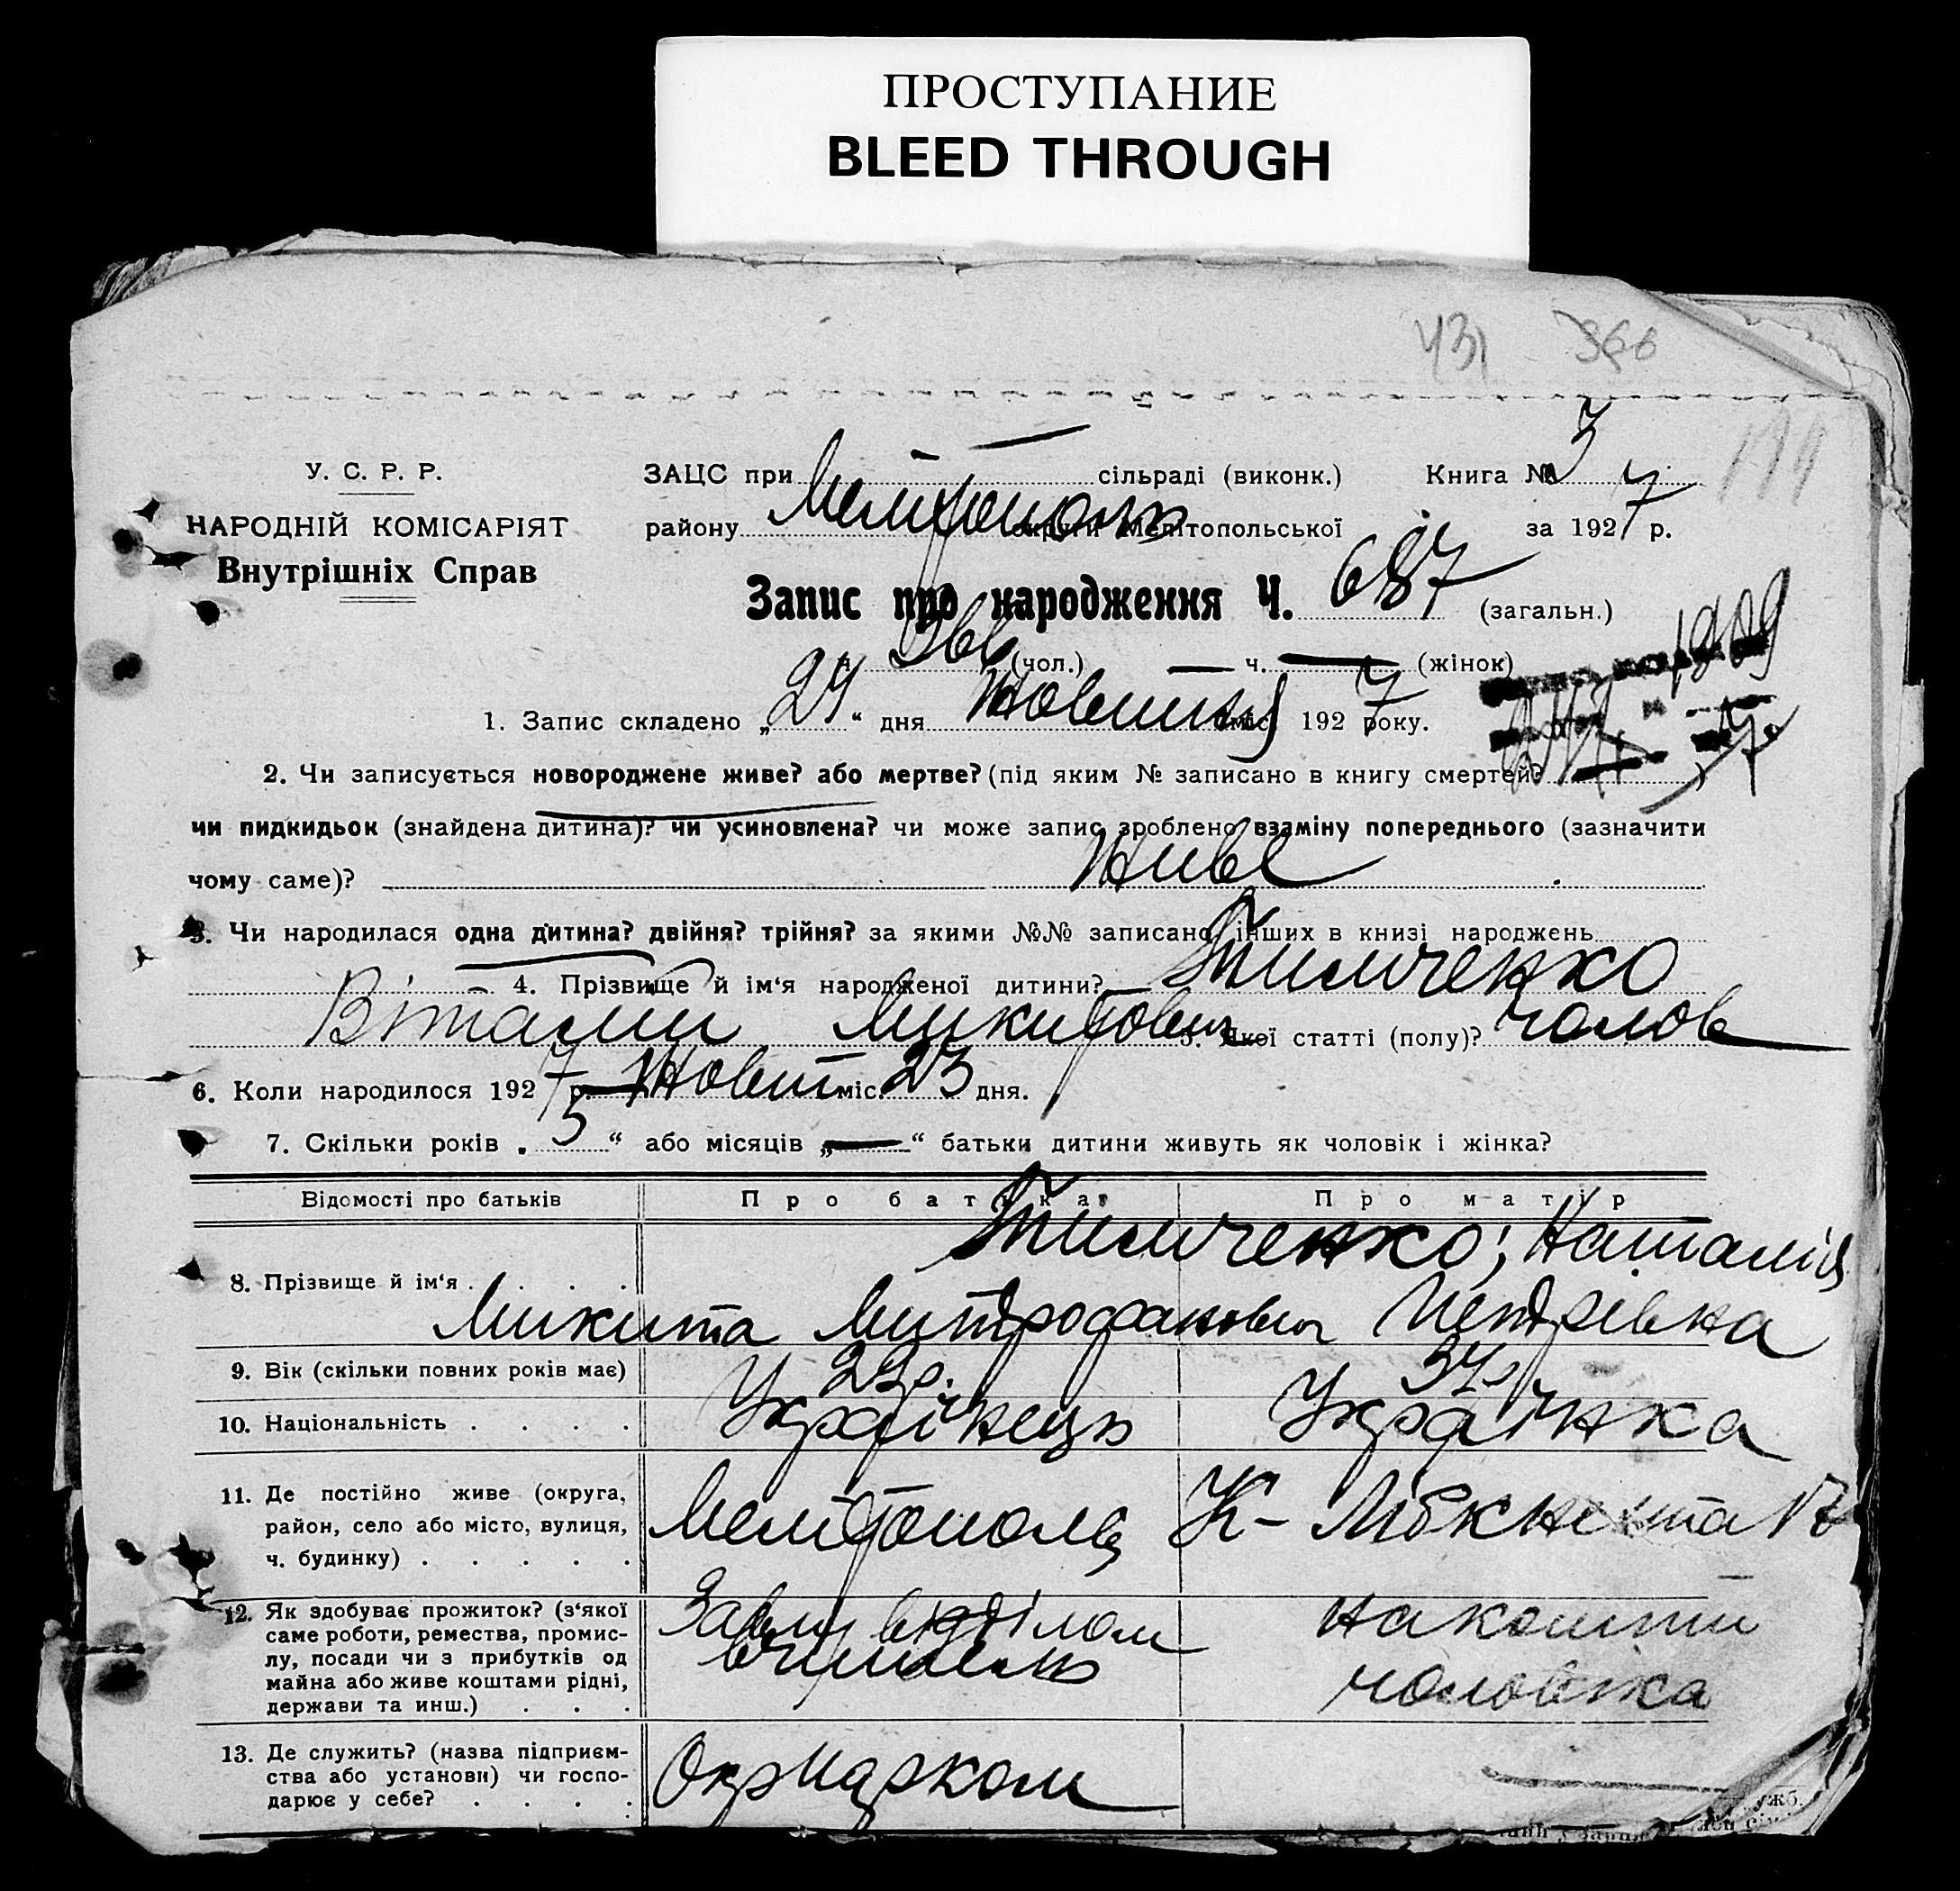 ПРОСТУПАНИЕ
BLEED THROUGH
431 366
У. С. Р. Р.
НАРОДНІЙ КОМІСАРІЯТ
Внутрішніх Справ
ЗАЦС при — сільраді (виконк.) Книга № 3
району Мелітополь округи Мелітопольської за 1927 р.
Запис про народження Ч. 687 (загальн.)
ч. 366 (чол.) — ч. — (жінок)
1. Запис складено „24“ дня Жовтня міс. 1927 року.
2. Чи записується новороджене живе? або мертве? (під яким № записано в книгу смертей? — )
чи пидкидьок (знайдена дитина)? чи усиновлена? чи може запис зроблено взаміну попереднього (зазначити
чому саме)? Живе
3. Чи народилася одна дитина? двійня? трійня? за якими №№ записано інших в книзі народжень
4. Прізвище й ім'я народженої дитини? Тимченко
Віталий Микитович 5. Якої статті (полу)? чолов
6. Коли народилося 1927 р. Жовт міс. 23 дня.
7. Скільки років „5“ або місяців „—“ батьки дитини живуть як чоловік і жінка?
Відомості про батьків Про батька Про матір
8. Прізвище й ім'я Тимченко; Наталія
Микита Митрофанович Петрівна
9. Вік (скільки повних років має)
10. Національність Українець Українка
11. Де постійно живе (округа, район, село або місто, вулиця, ч. будинку) Мелітополь К- Лібкнехта 17
12. Як здобуває прожиток? (з'якої
саме роботи, ремества, промис-
лу, посади чи з прибутків од
майна або живе коштами рідні,
держави та инш.)
відділом на кошти
вчитель чоловіка
13. Де служить? (назва підприєм-
ства або установи) чи госпо-
дарює у себе?
Окрпарком